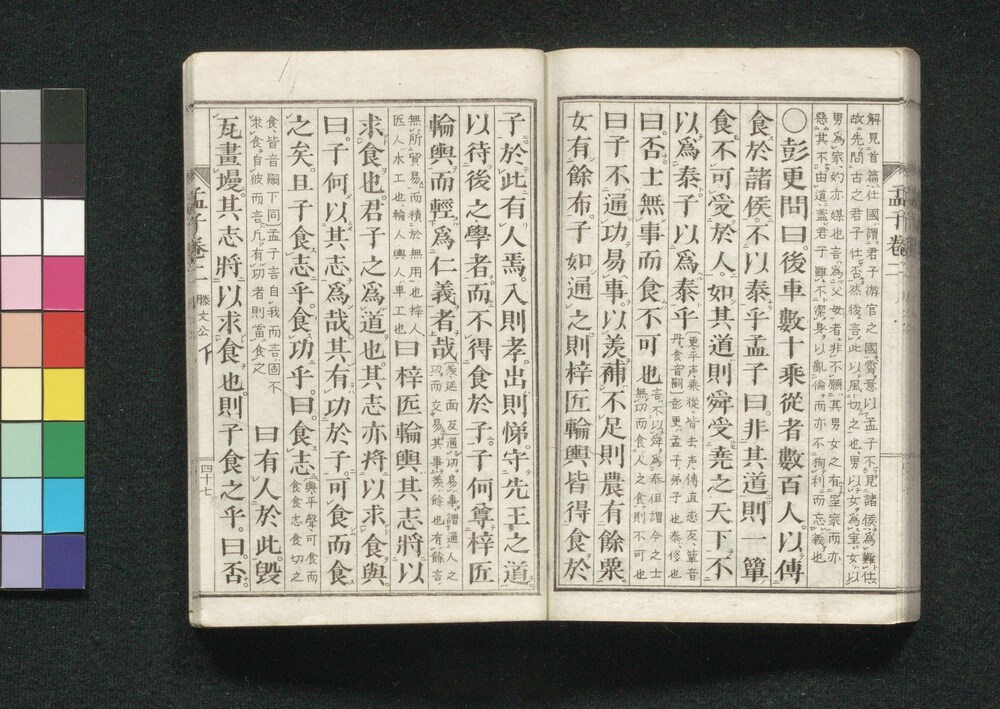 解見首篇仕國謂君子游宦之國霄意以孟子不見諸侯爲難仕
故先問古之君子仕否然後言此以風切之也男以女爲室女以
男爲家妁亦媒也言爲父母者非不願其男女之有室家而亦
惡其不由道蓋君子雖不潔身以亂倫而亦不拘利而忘義也
○彭更問曰後車數十乘從者數百人以傳
食於諸侯不以泰乎孟子曰非其道則一簞
食不可受於人如其道則舜受堯之天下不
以爲泰子以爲泰乎
更平声乘從皆去声傳直恋反簞音
丹食音嗣彭更孟子弟子也泰侈也
曰否士無事而食不可也
言不以舜爲泰但謂今之士
無功而食人之食則不可也
曰子不通功易事以羨補不足則農有餘粟
女有餘布子如通之則梓匠輪輿皆得食於
孟子卷二
子於此有人焉入則孝出則悌守先王之道
以待後之學者而不得食於子子何尊梓匠
輪輿而輕爲仁義者哉
羨延面反通功易事謂通人之
功而交易其事羨餘也有餘言
無所貿易而積於無用也梓人
匠人木工也輪人輿人車工也
曰梓匠輪輿其志將以
求食也君子之爲道也其志亦將以求食與
曰子何以其志爲哉其有功於子可食而食
之矣且子食志乎食功乎曰食志
與平聲可食而
食食志食功之
食皆音嗣下同孟子言自我而言固不
求食自彼而言凡有功者則當食之
曰有人於此毀
瓦畫墁其志將以求食也則子食之乎曰否
孟子卷二 滕文公下 四十七